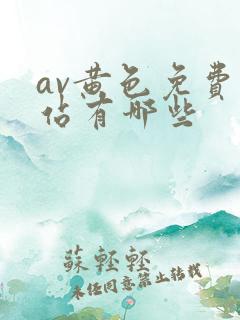 av黄色免費
佔有哪些
蘇輕輕
未经同意禁止转载